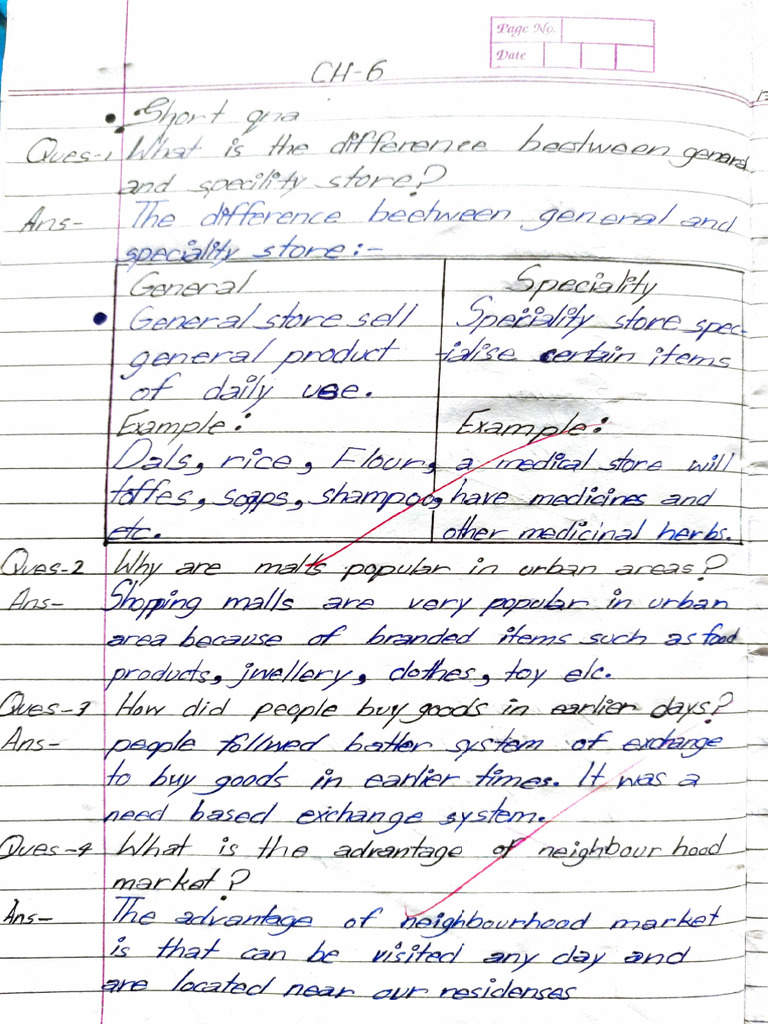 Page No.
Date
CH-6
• Short qna
Ques-1 What is the difference beetween general
and specility store?
Ans- The difference beetween general and
speciality store:-
General Speciality
• General store sell Speciality store spec-
general product ialise certain items
of daily use.
Example: Example:
Dals, rice, Flour, a medical store will
toffes, soaps, shampoo, have medicines and
etc. other medicinal herbs.
Ques-2 Why are malls popular in urban areas?
Ans- Shopping malls are very popular in urban
area because of branded items such as food
products, jwellery, clothes, toy etc.
Ques-3 How did people buy goods in earlier days?
Ans- people follwed batter system of exchange
to buy goods in earlier times. It was a
need based exchange system.
Ques-4 What is the advantage of neighbour hood
market?
Ans- The advantage of neighbourhood market
is that can be visited any day and
are located near our residenses